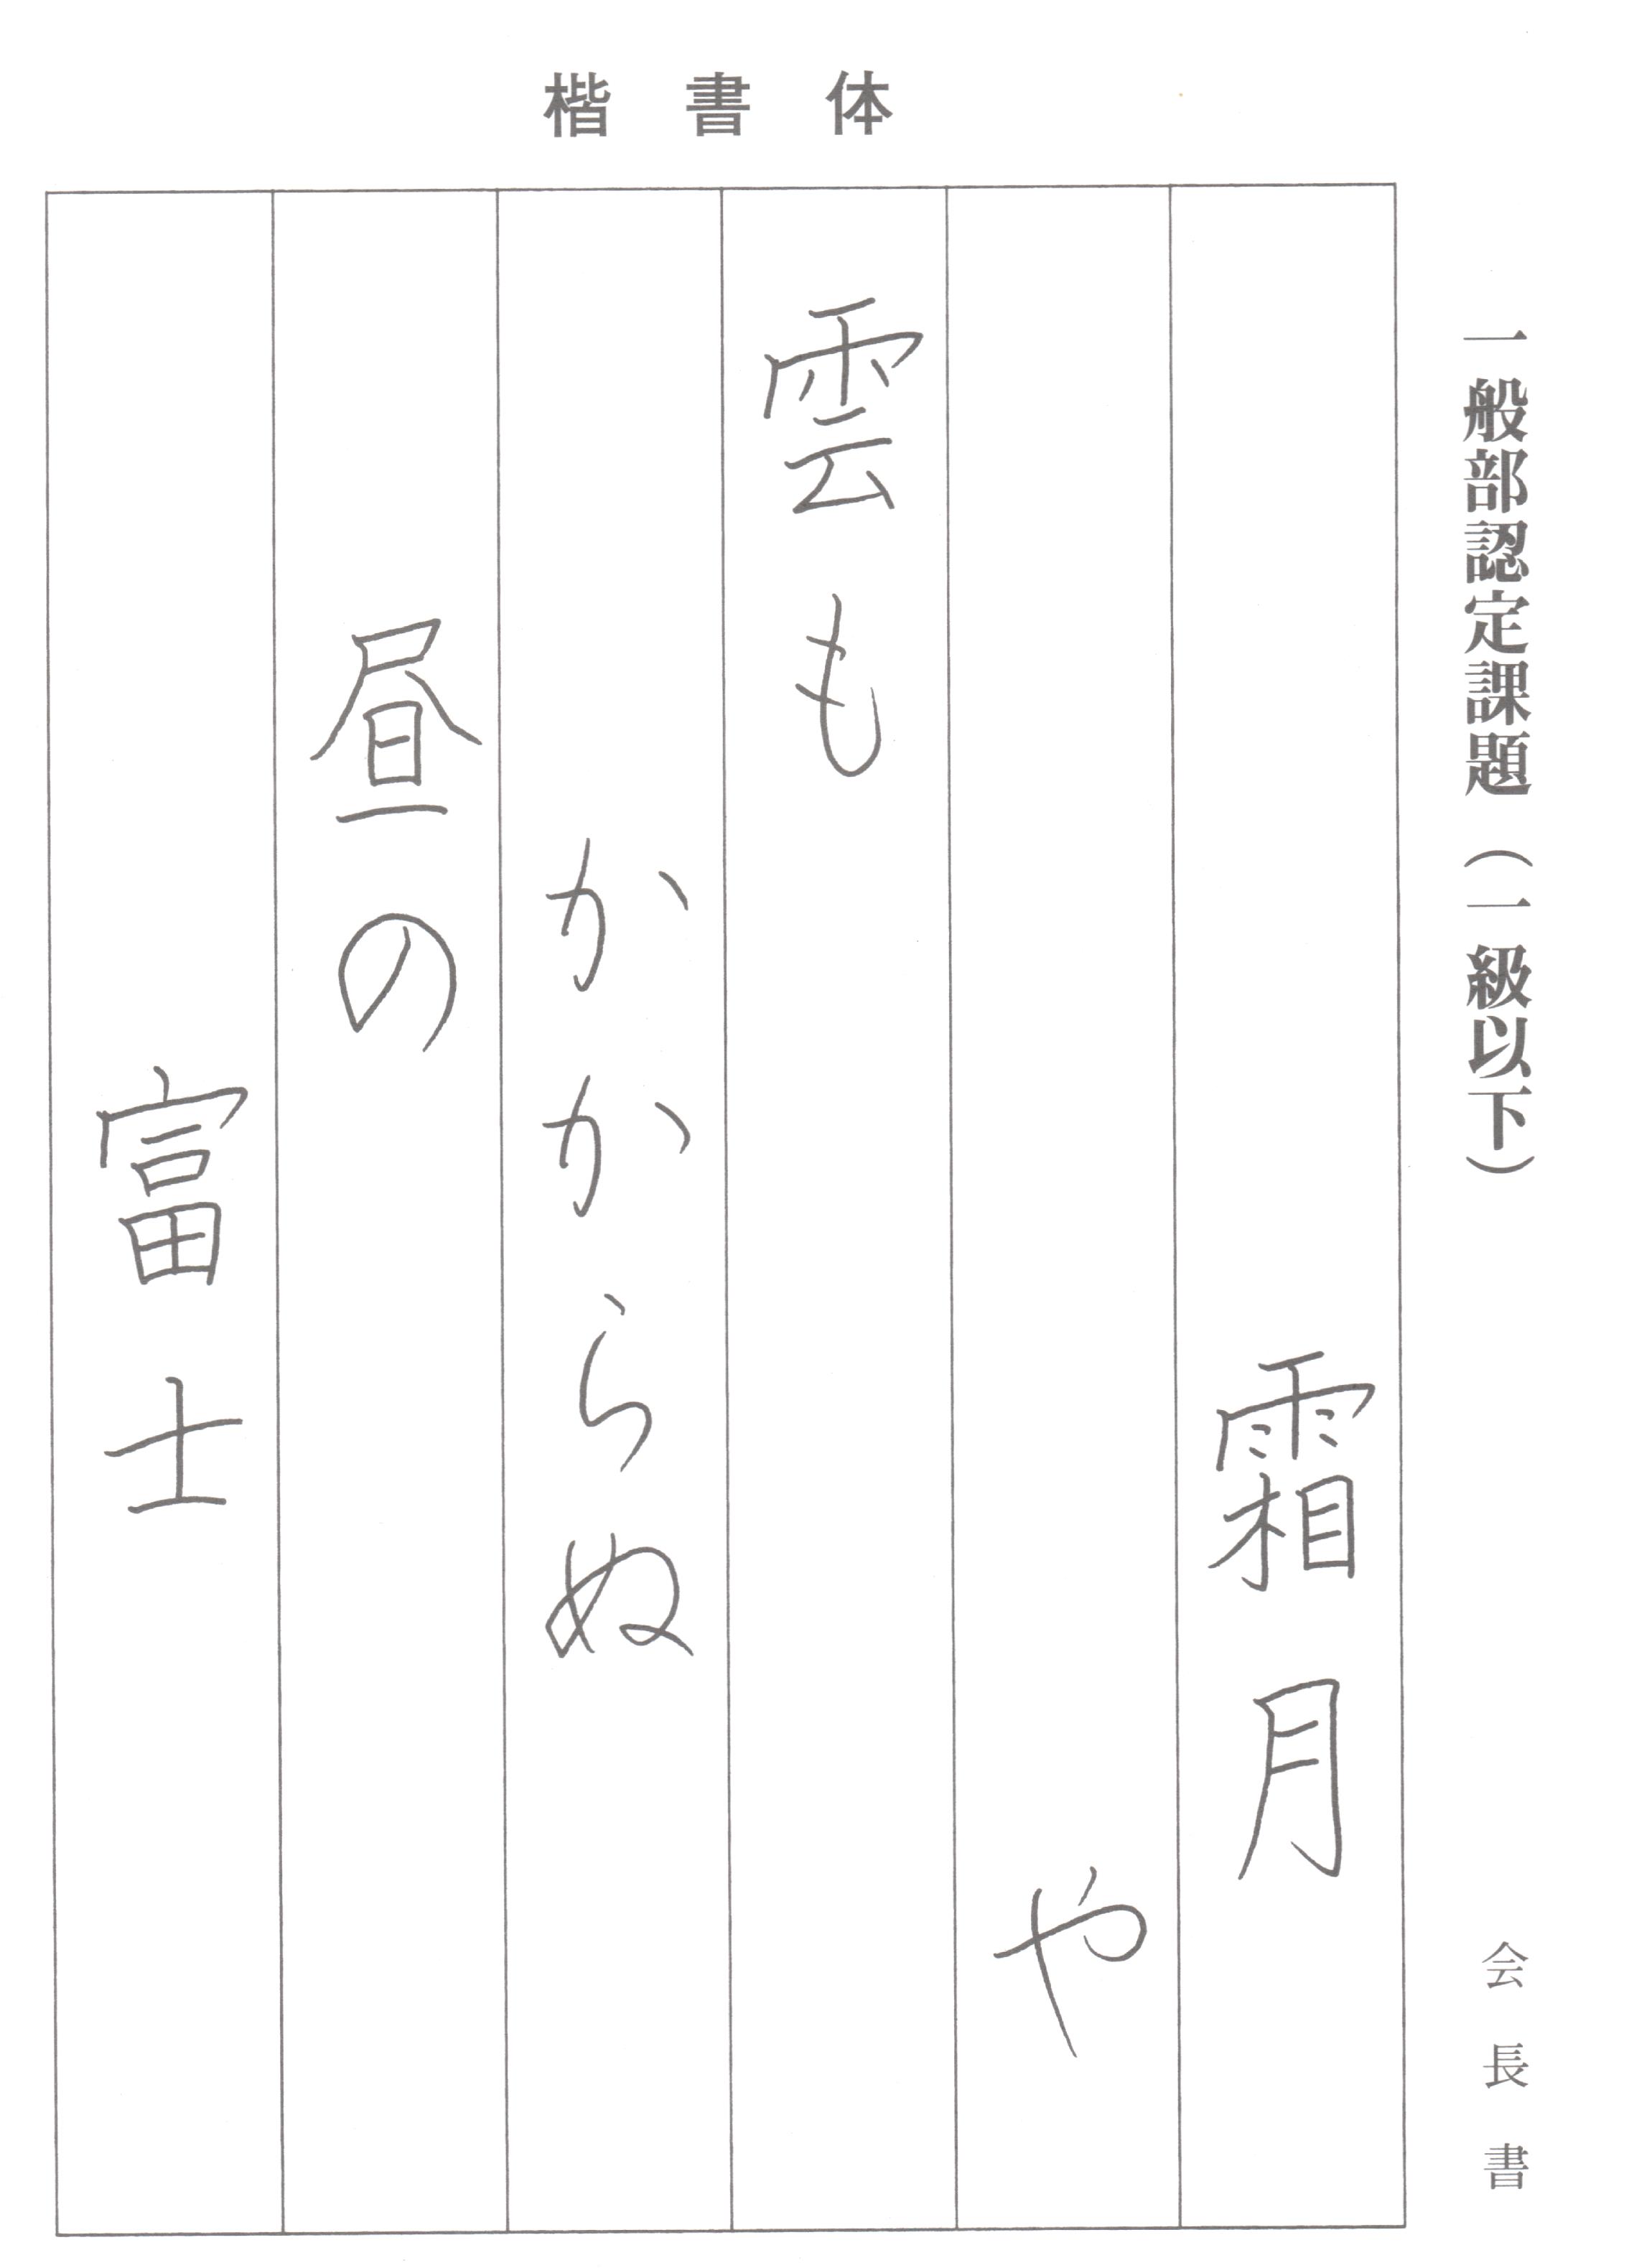 楷書体
一般部認定課題（一級以下）
会長書
霜月
や
雲も
かからぬ
昼の
富士